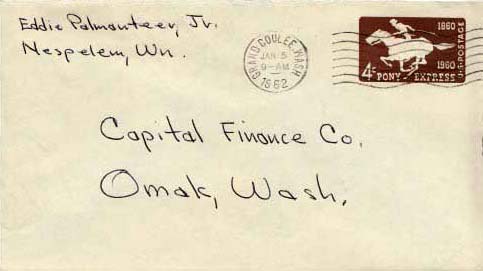 Eddie Palmanteer, Jr.
Nespelem, Wn.
GRAND COULEE, WASH.
JAN 5
9-AM
1962
1860
1960
4¢ PONY EXPRESS
U.S. POSTAGE
Capital Finance Co.
Omak, Wash.